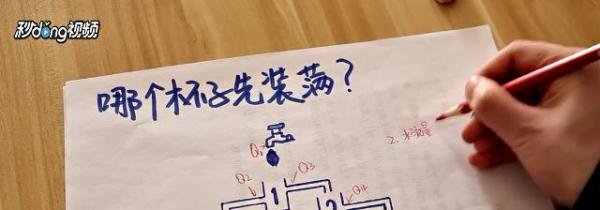 秒dǒng视频
哪个杯子先装满?
Q1
Q2
Q3
Q4
1
2
2.